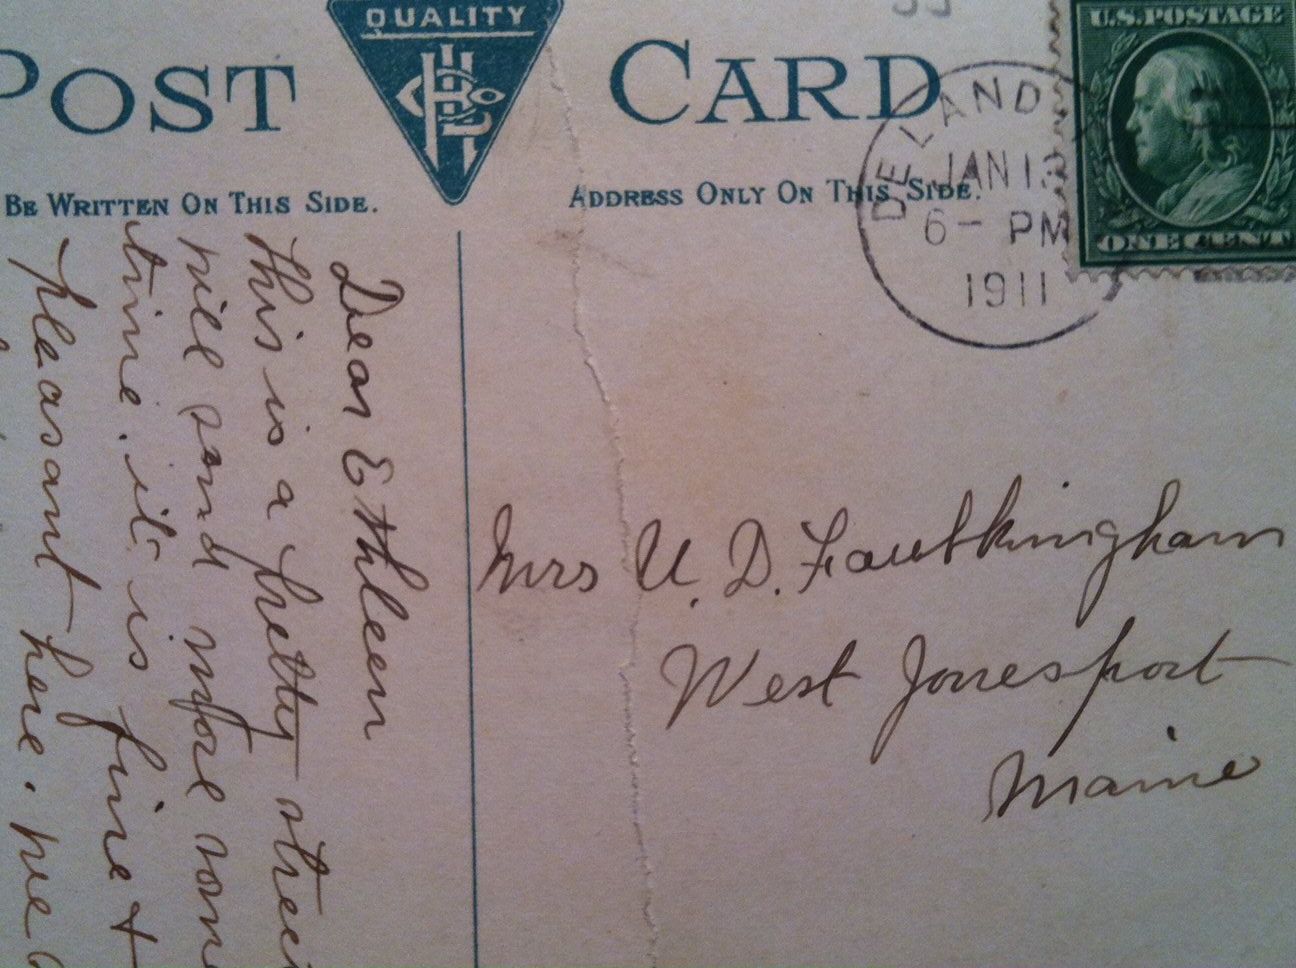 QUALITY
POST CARD
BE WRITTEN ON THIS SIDE.
ADDRESS ONLY ON THIS SIDE.
U.S. POSTAGE
ONE CENT
DELAND
JAN 13
6 - PM
1911
Dear Ethleen
this is a pretty
will send more some
time. it is fine &
pleasant here. we
Mrs U. D. Faulkingham
West Jonesport
Maine